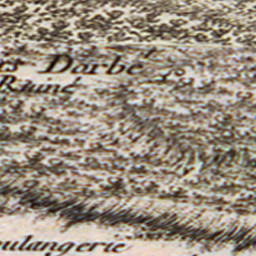 Dorbé
Ruiné
oulangerie